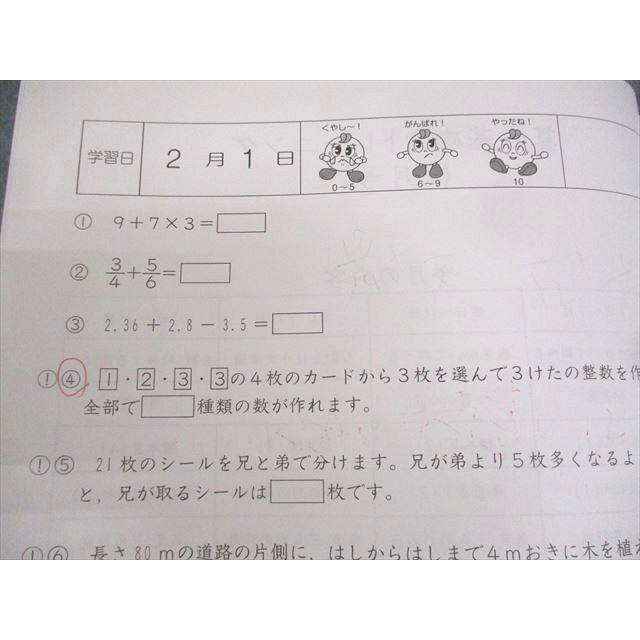 くやし〜! がんばれ! やったね!
学習日 2月1日
0〜5 6〜9 10
① 9+7×3=
② 3/4+5/6=
③ 2.36+2.8−3.5=
!④ 1・2・3・3の4枚のカードから3枚を選んで3けたの整数を作
全部で 種類の数が作れます。
!⑤ 21枚のシールを兄と弟で分けます。兄が弟より5枚多くなるよ
と，兄が取るシールは 枚です。
!⑥ 長さ80mの道路の片側に，はしからはしまで4mおきに木を植え